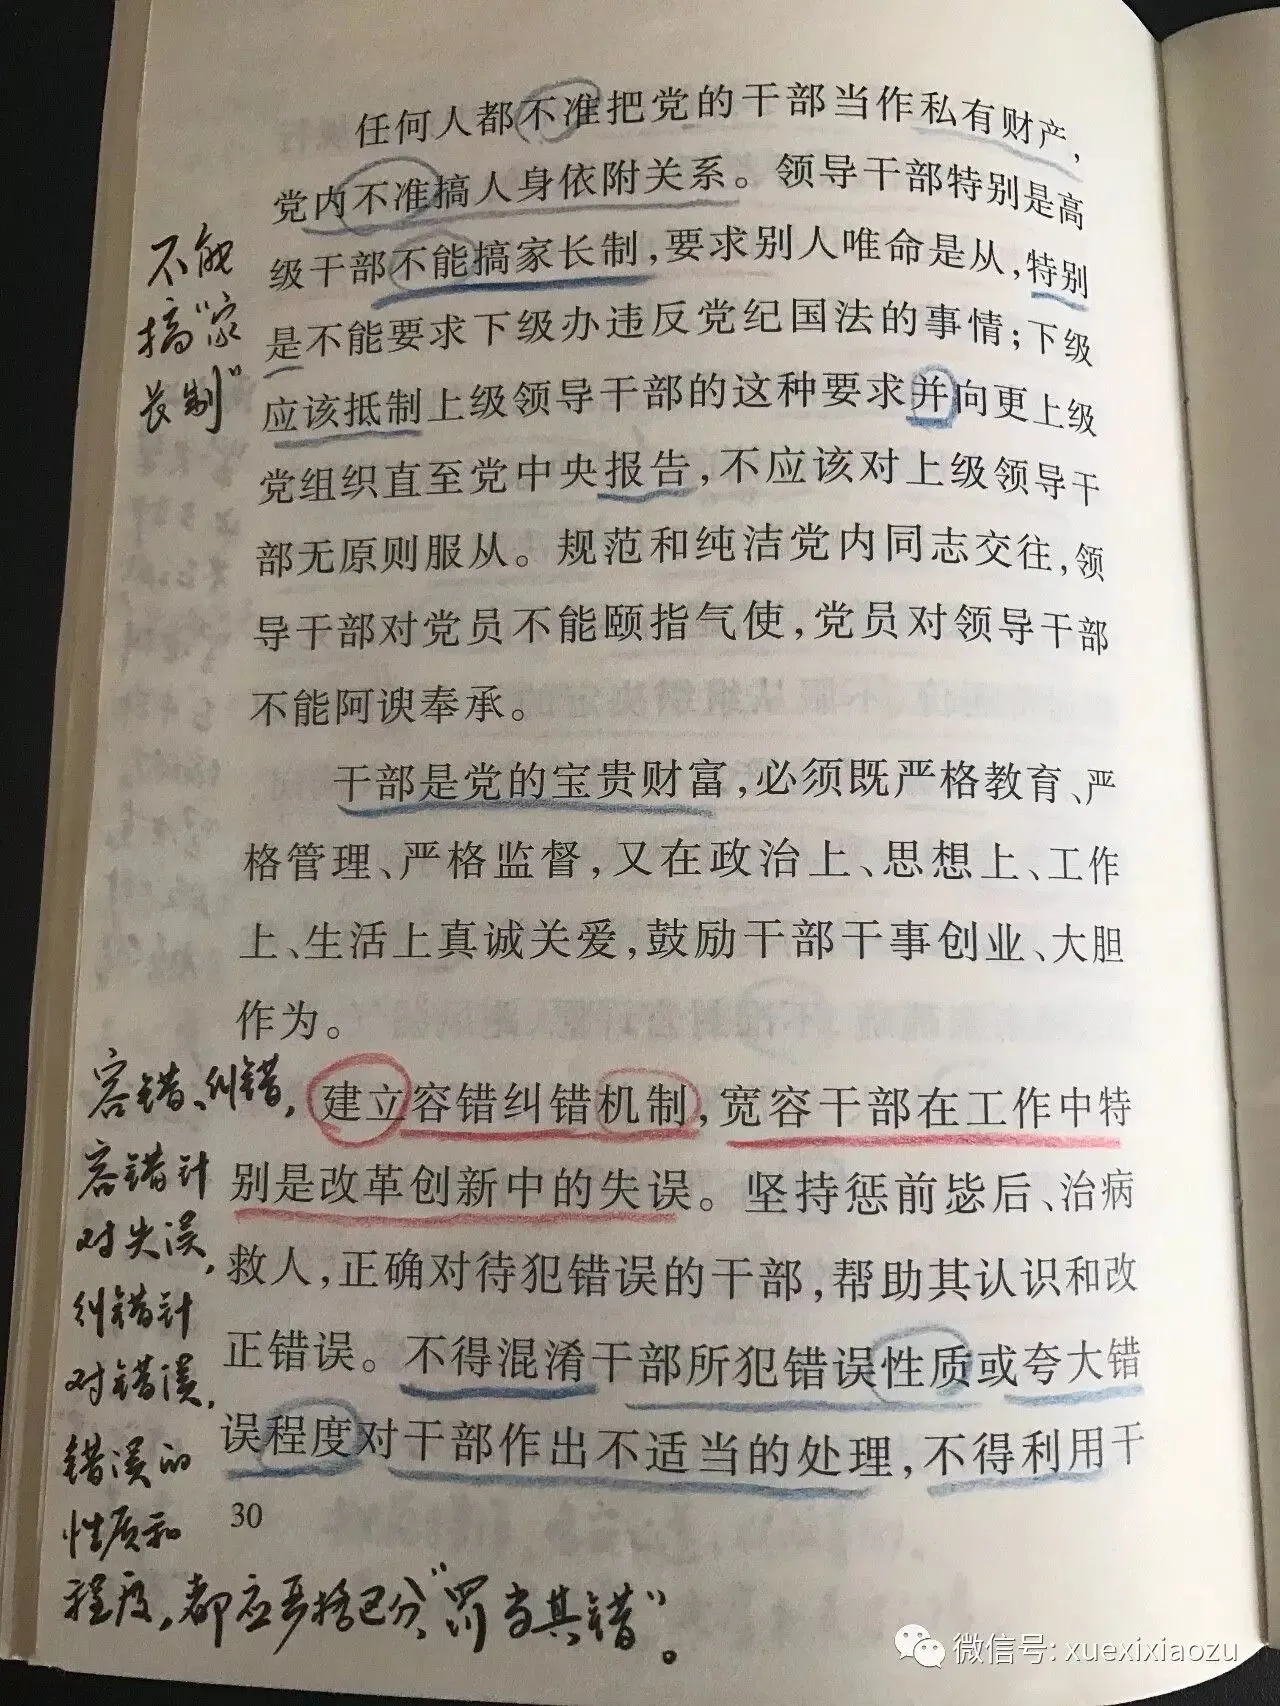 任何人都不准把党的干部当作私有财产，
党内不准搞人身依附关系。领导干部特别是高
级干部不能搞家长制，要求别人唯命是从，特别
是不能要求下级办违反党纪国法的事情；下级
应该抵制上级领导干部的这种要求并向更上级
党组织直至党中央报告，不应该对上级领导干
部无原则服从。规范和纯洁党内同志交往，领
导干部对党员不能颐指气使，党员对领导干部
不能阿谀奉承。
干部是党的宝贵财富，必须既严格教育、严
格管理、严格监督，又在政治上、思想上、工作
上、生活上真诚关爱，鼓励干部干事创业、大胆
作为。
建立容错纠错机制，宽容干部在工作中特
别是改革创新中的失误。坚持惩前毖后、治病
救人，正确对待犯错误的干部，帮助其认识和改
正错误。不得混淆干部所犯错误性质或夸大错
误程度对干部作出不适当的处理，不得利用干
30
不能
搞“家
长制”
容错、纠错，
容错针
对失误，
纠错针
对错误，
错误的
性质和
程度，都应严格区分，“罚当其错”。
微信号: xuexixiaozu